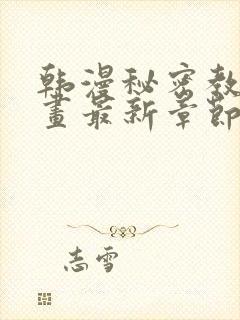 韩漫秘密教
画最新章節
志雪